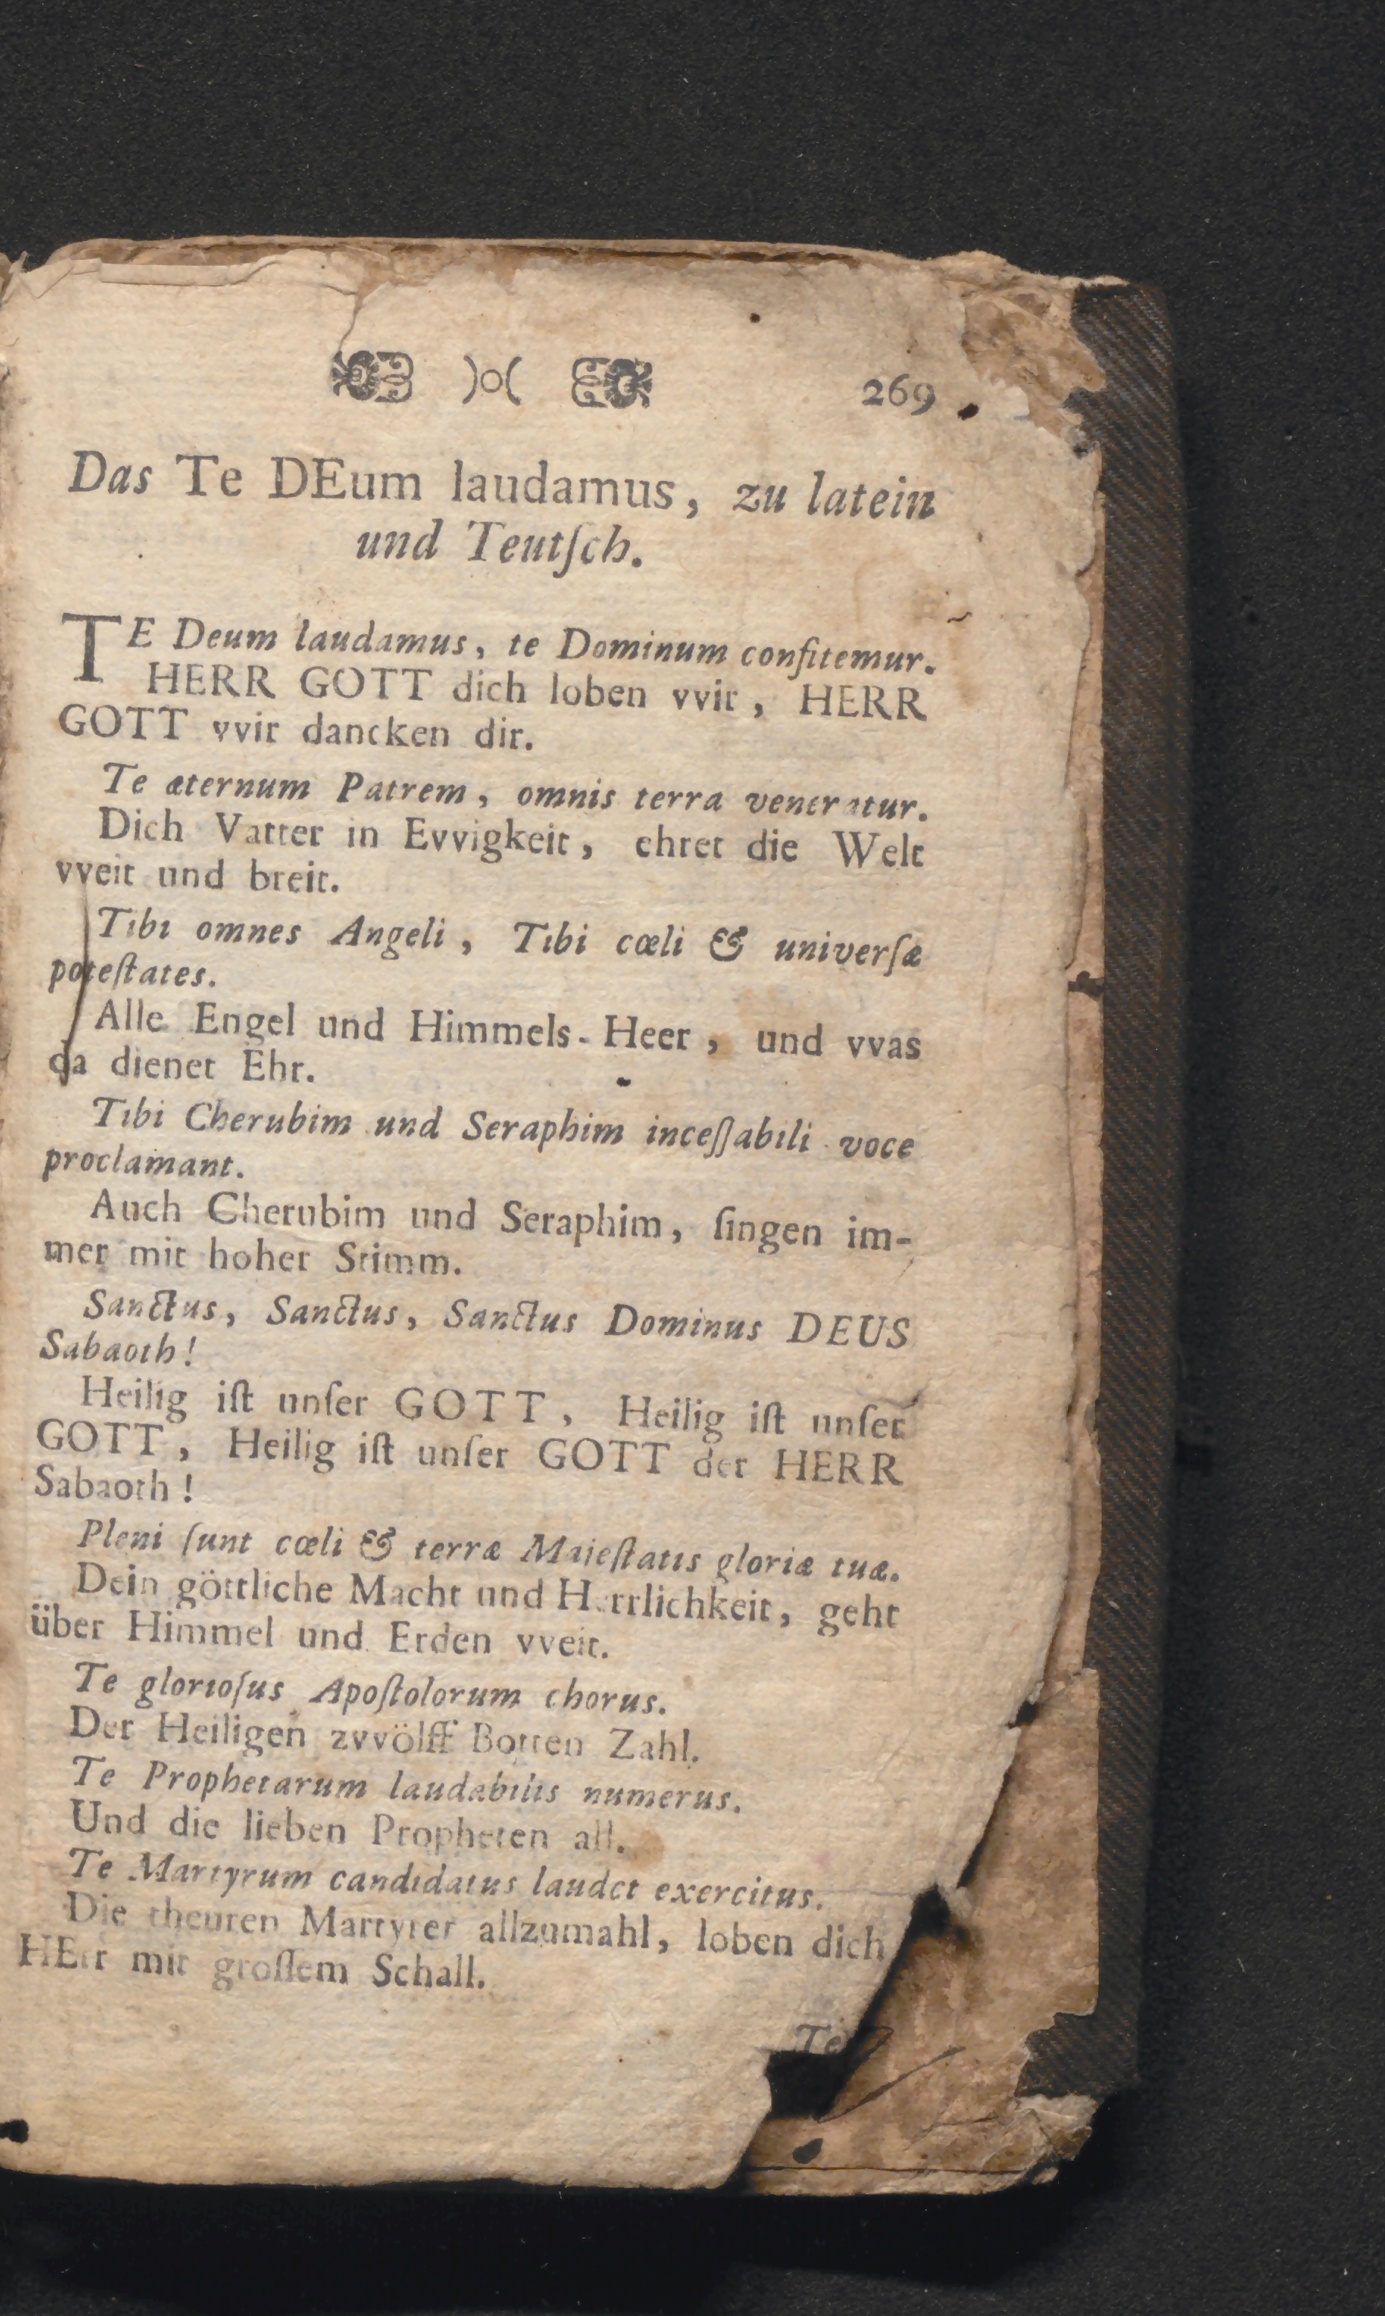 )o( 269
Das Te DEum laudamus, zu latein
und Teutſch.
TE Deum laudamus, te Dominum confitemur.
HERR GOTT dich loben vvir, HERR
GOTT vvir dancken dir.
Te æternum Patrem, omnis terra veneratur.
Dich Vatter in Evvigkeit, ehret die Welt
vveit und breit.
Tibi omnes Angeli, Tibi cœli & univerſæ
poteſtates.
Alle Engel und Himmels-Heer, und vvas
da dienet Ehr.
Tibi Cherubim und Seraphim inceſſabili voce
proclamant.
Auch Cherubim und Seraphim, ſingen im-
mer mit hoher Stimm.
Sanctus, Sanctus, Sanctus Dominus DEUS
Sabaoth!
Heilig iſt unſer GOTT, Heilig iſt unſer
GOTT, Heilig iſt unſer GOTT der HERR
Sabaoth!
Pleni ſunt cœli & terræ Majeſtatis gloriæ tuæ.
Dein göttliche Macht und Herrlichkeit, geht
über Himmel und Erden vveit.
Te glorioſus Apoſtolorum chorus.
Der Heiligen zvvölff Botten Zahl.
Te Prophetarum laudabilis numerus.
Und die lieben Propheten all.
Te Martyrum candidatus laudet exercitus.
Die theuren Martyrer allzumahl, loben dich
HErr mit groſſem Schall.
Te